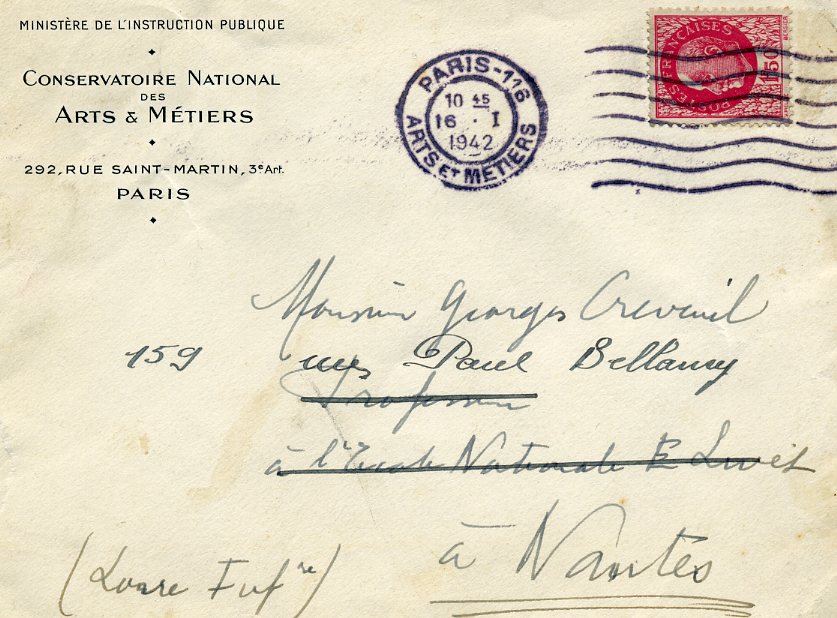 MINISTÈRE DE L'INSTRUCTION PUBLIQUE
CONSERVATOIRE NATIONAL
DES
ARTS & MÉTIERS
292, RUE SAINT-MARTIN, 3e Arr.
PARIS
PARIS-116
10 45
16 · I
1942
ARTS ET METIERS
POSTES FRANÇAISES
1F50
Monsieur Georges Creveuil
159 rue Paul Bellamy
Professeur
à l'Ecole Nationale E Livet
à Nantes
(Loire Infre)